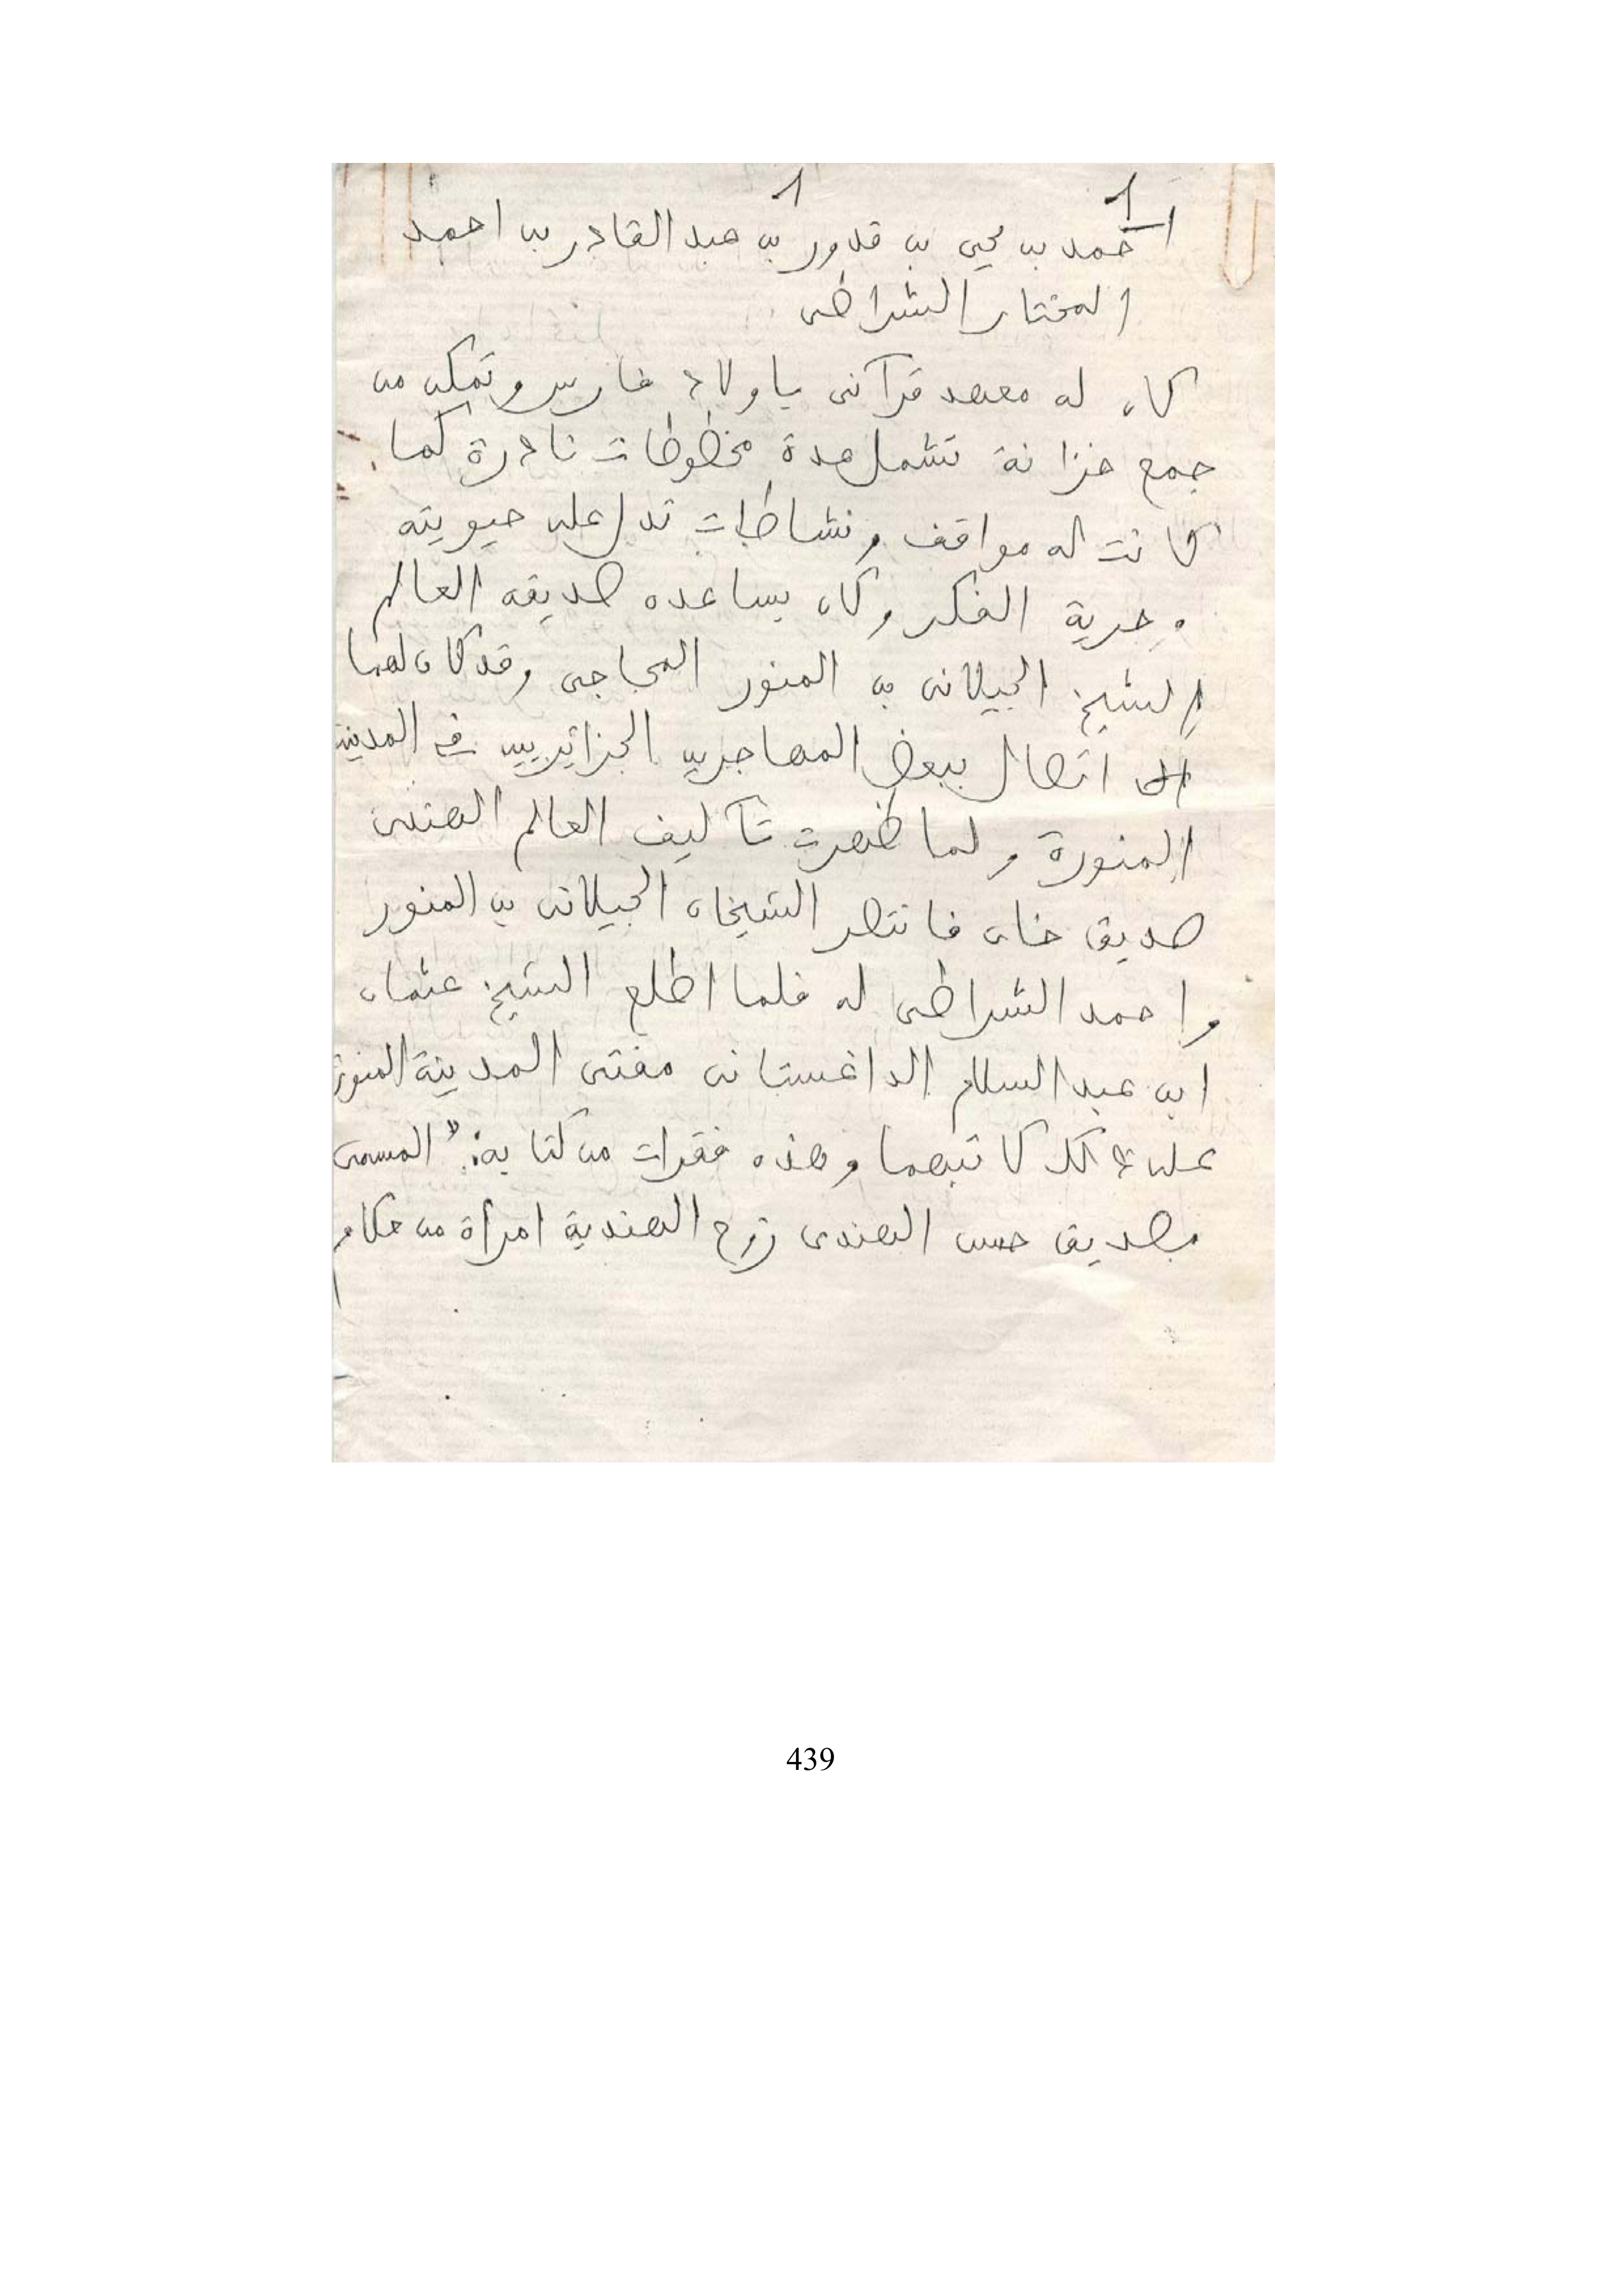 1 1
احمد بن يحي بن قدور بن عبد القادر بن احمد
المختار الشراطى
كان له معهد قرآنى باولاد فارس وتمكن من
جمع خزانة تشمل عدة مخطوطات نادرة كما
كانت له مواقف ونشاطات تدل على حيويته
وحرية الفكر وكان يساعده صديقه العالم
الشيخ الجيلانى بن المنور المجاجى وقد كان لهما
اتصال ببعض المهاجرين الجزائريين في المدينة
المنورة ولما ظهرت تآليف العالم الهندى
صديق خان فانتصر الشيخان الجيلانى بن المنور
واحمد الشراطى له فلما اطلع الشيخ عثمان
ابن عبد السلام الداغستانى مفتى المدينة المنورة
على ذلك كاتبهما وهذه فقرات من كتابه: "المسمى
بصديق حسن الهندى زوج الهندية امرأة من حكام
439